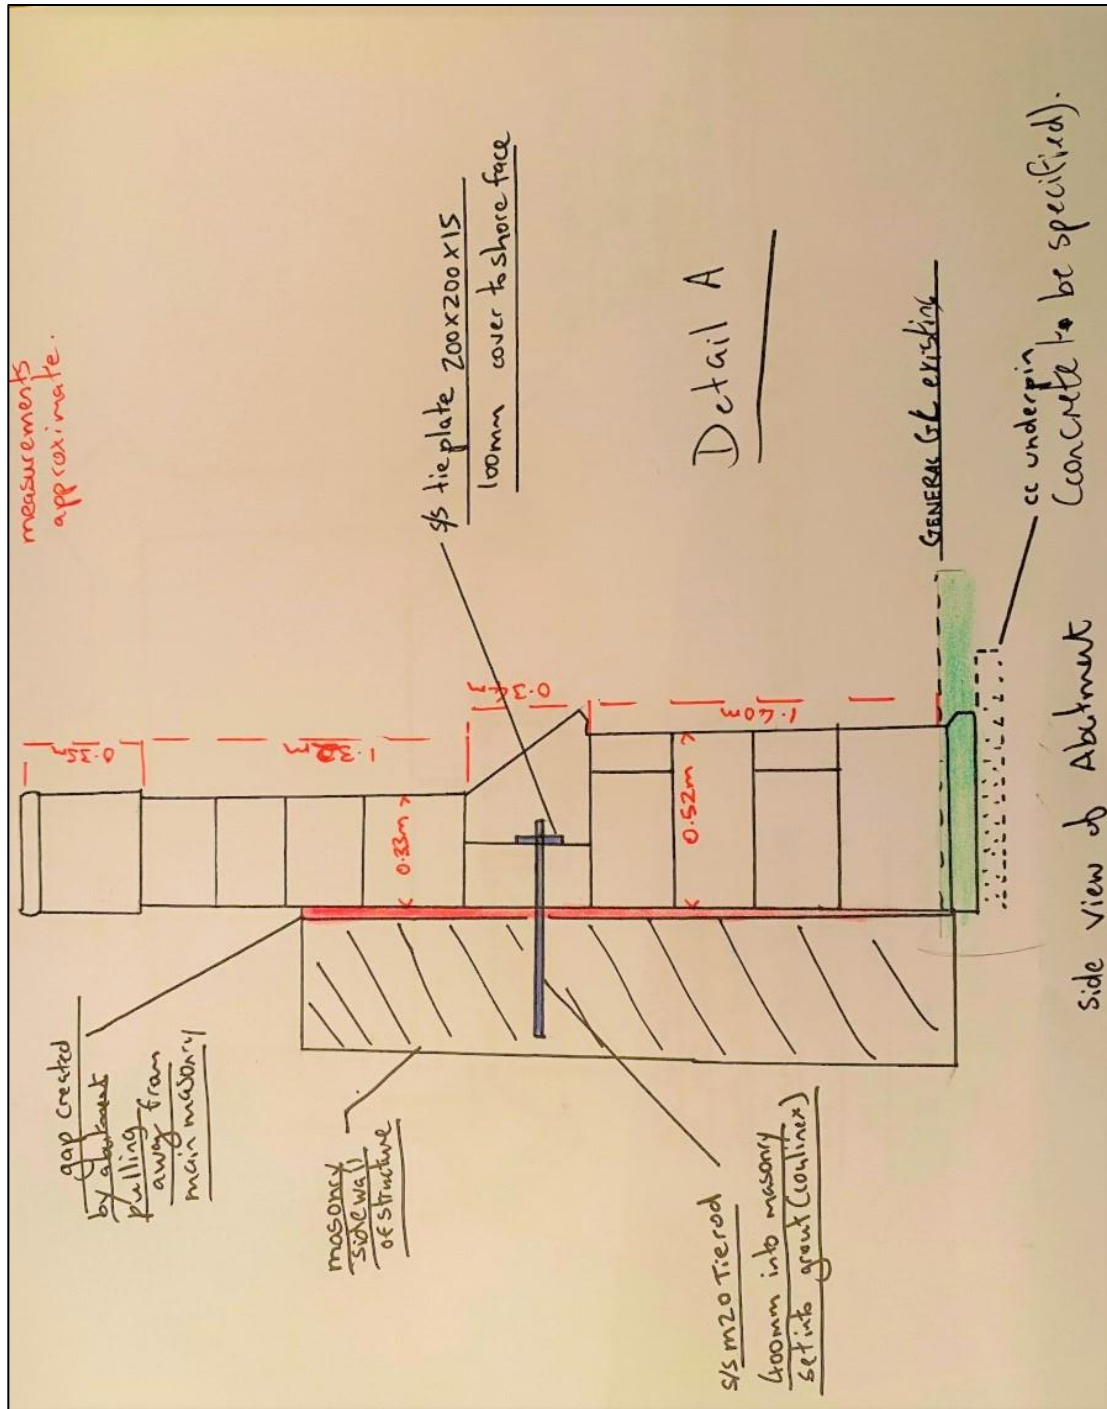 measurements
approximate.
s/s tieplate 200x200x15
100mm cover to shore face
Detail A
GENERAL GL existing
cc underpin
(concrete to be specified).
side view of Abutment
gap created
by abutment
pulling
away from
main masonry
masonry
sidewall
of structure
s/s m20 Tierod
400mm into masonry
set into grout
0.35m
0.33m
0.52m
1.40m